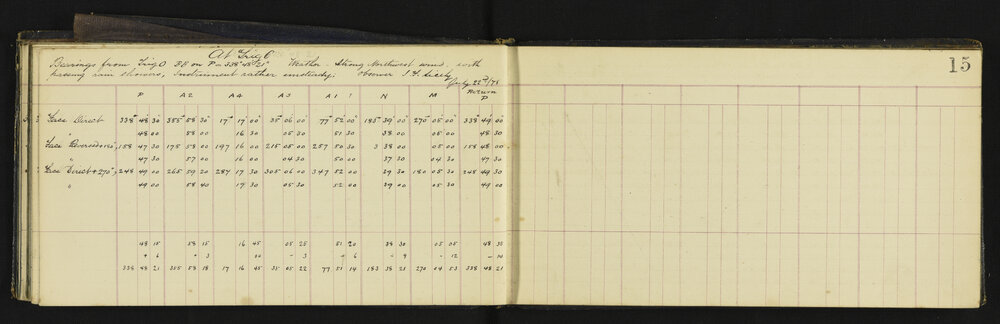 At Trig O
Bearings from Trig O B.B on P = 338° 48' 21" Weather - Strong Northwest wind with
passing rain showers, Instrument rather unsteady. Observer
July 22nd/78
15
P A2 A4 A3 A1 N M Return P
Face Direct 338° 48' 30" 355° 58' 30" 17° 17' 00" 35° 06' 00" 77° 52' 00" 183° 39' 00" 270° 05' 00" 338° 49' 00"
" 48 00 58 00 16 30 05 30 51 30 38 00 05 00 48 30
Face Reversed 180°, 158 47 30 175 58 00 197 16 00 215 05 00 257 50 30 3 38 00 05 00 158 48 00
" 47 30 57 00 16 00 04 30 50 00 37 30 04 30 47 30
Face Direct + 270°, 248 49 00 265 59 20 287 17 30 305 06 00 347 52 00 39 30 180 05 30 248 49 30
" 49 00 58 40 17 30 05 30 52 00 39 00 05 30 49 00
48 15 58 15 16 45 05 25 51 20 38 30 05 05 48 35
+ 6 + 3 00 - 3 - 6 - 9 - 12 - 14
338 48 21 355 58 18 17 16 45 35 05 22 77 51 14 183 38 21 270 04 53 338 48 21